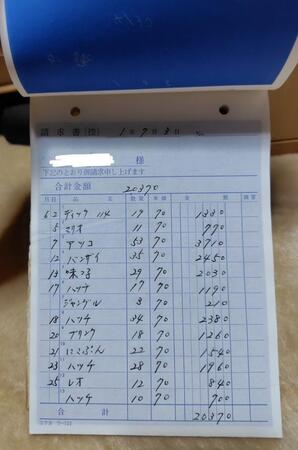 請求書(控) 1年7月3日
様
下記のとおり御請求申し上げます
合計金額 20370
月日 品名 数量 単価 金額 摘要
6 2 ディック 114 19 70 1330
5 マリオ 11 70 770
7 アツコ 53 70 3710
12 バンザイ 35 70 2450
29 70 2030
17 ハッチ 17 70 1190
ジャングル 3 70 210
18 ハッチ 34 70 2380
20 18 70 1260
21 にこぷん 22 70 1540
23 ハッチ 28 70 1960
25 レオ 12 70 840
ハッチ 10 70 700
合計 20370